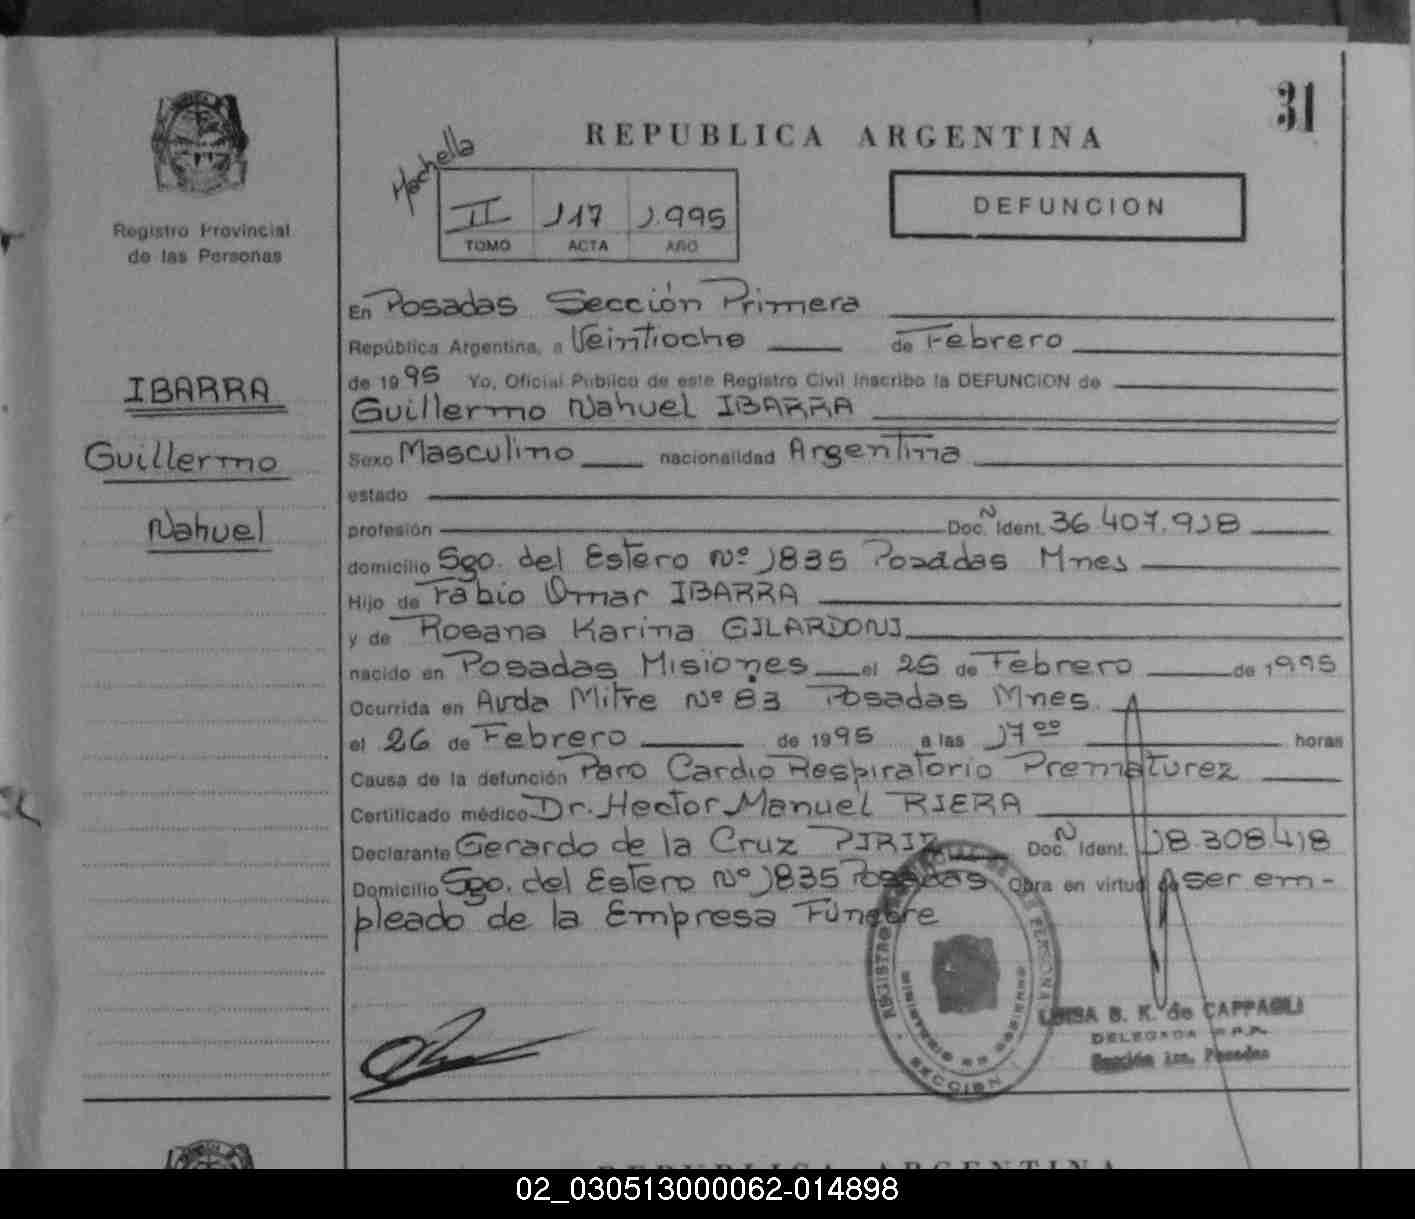 31
REPUBLICA ARGENTINA
Registro Provincial
de las Personas
II 117 1.995
TOMO ACTA AÑO
DEFUNCION
IBARRA
Guillermo
Nahuel
En Posadas Sección Primera
República Argentina, a Veintiocho de Febrero
de 1995 Yo, Oficial Publico de este Registro Civil inscribo la DEFUNCION de
Guillermo Nahuel IBARRA
Sexo Masculino nacionalidad Argentina
estado
profesión Doc. N Ident. 36.407.918
domicilio Sgo. del Estero Nº 1835 Posadas Mnes
Hijo de Fabio Omar IBARRA
y de Rosana Karina GILARDONI
nacido en Posadas Misiones el 26 de Febrero de 1995
Ocurrida en Avda Mitre Nº 83 Posadas Mnes.
el 26 de Febrero de 1995 a las 17 00 horas
Causa de la defunción Paro Cardio Respiratorio Prematurez
Certificado médico Dr. Hector Manuel RIERA
Declarante Gerardo de la Cruz Doc. N Ident. 18.308.418
Domicilio Sgo. del Estero Nº 1835 Posadas Obra en virtud de ser em-
pleado de la Empresa Fúnebre
REGISTRO PROVINCIAL DE LAS PERSONAS
MINISTERIO DE GOBIERNO
SECCION
LUISA B. K. de CAPPAGLI
DELEGADA R.P.P.
Sección 1ra. Posadas
REPUBLICA ARGENTINA
02_030513000062-014898